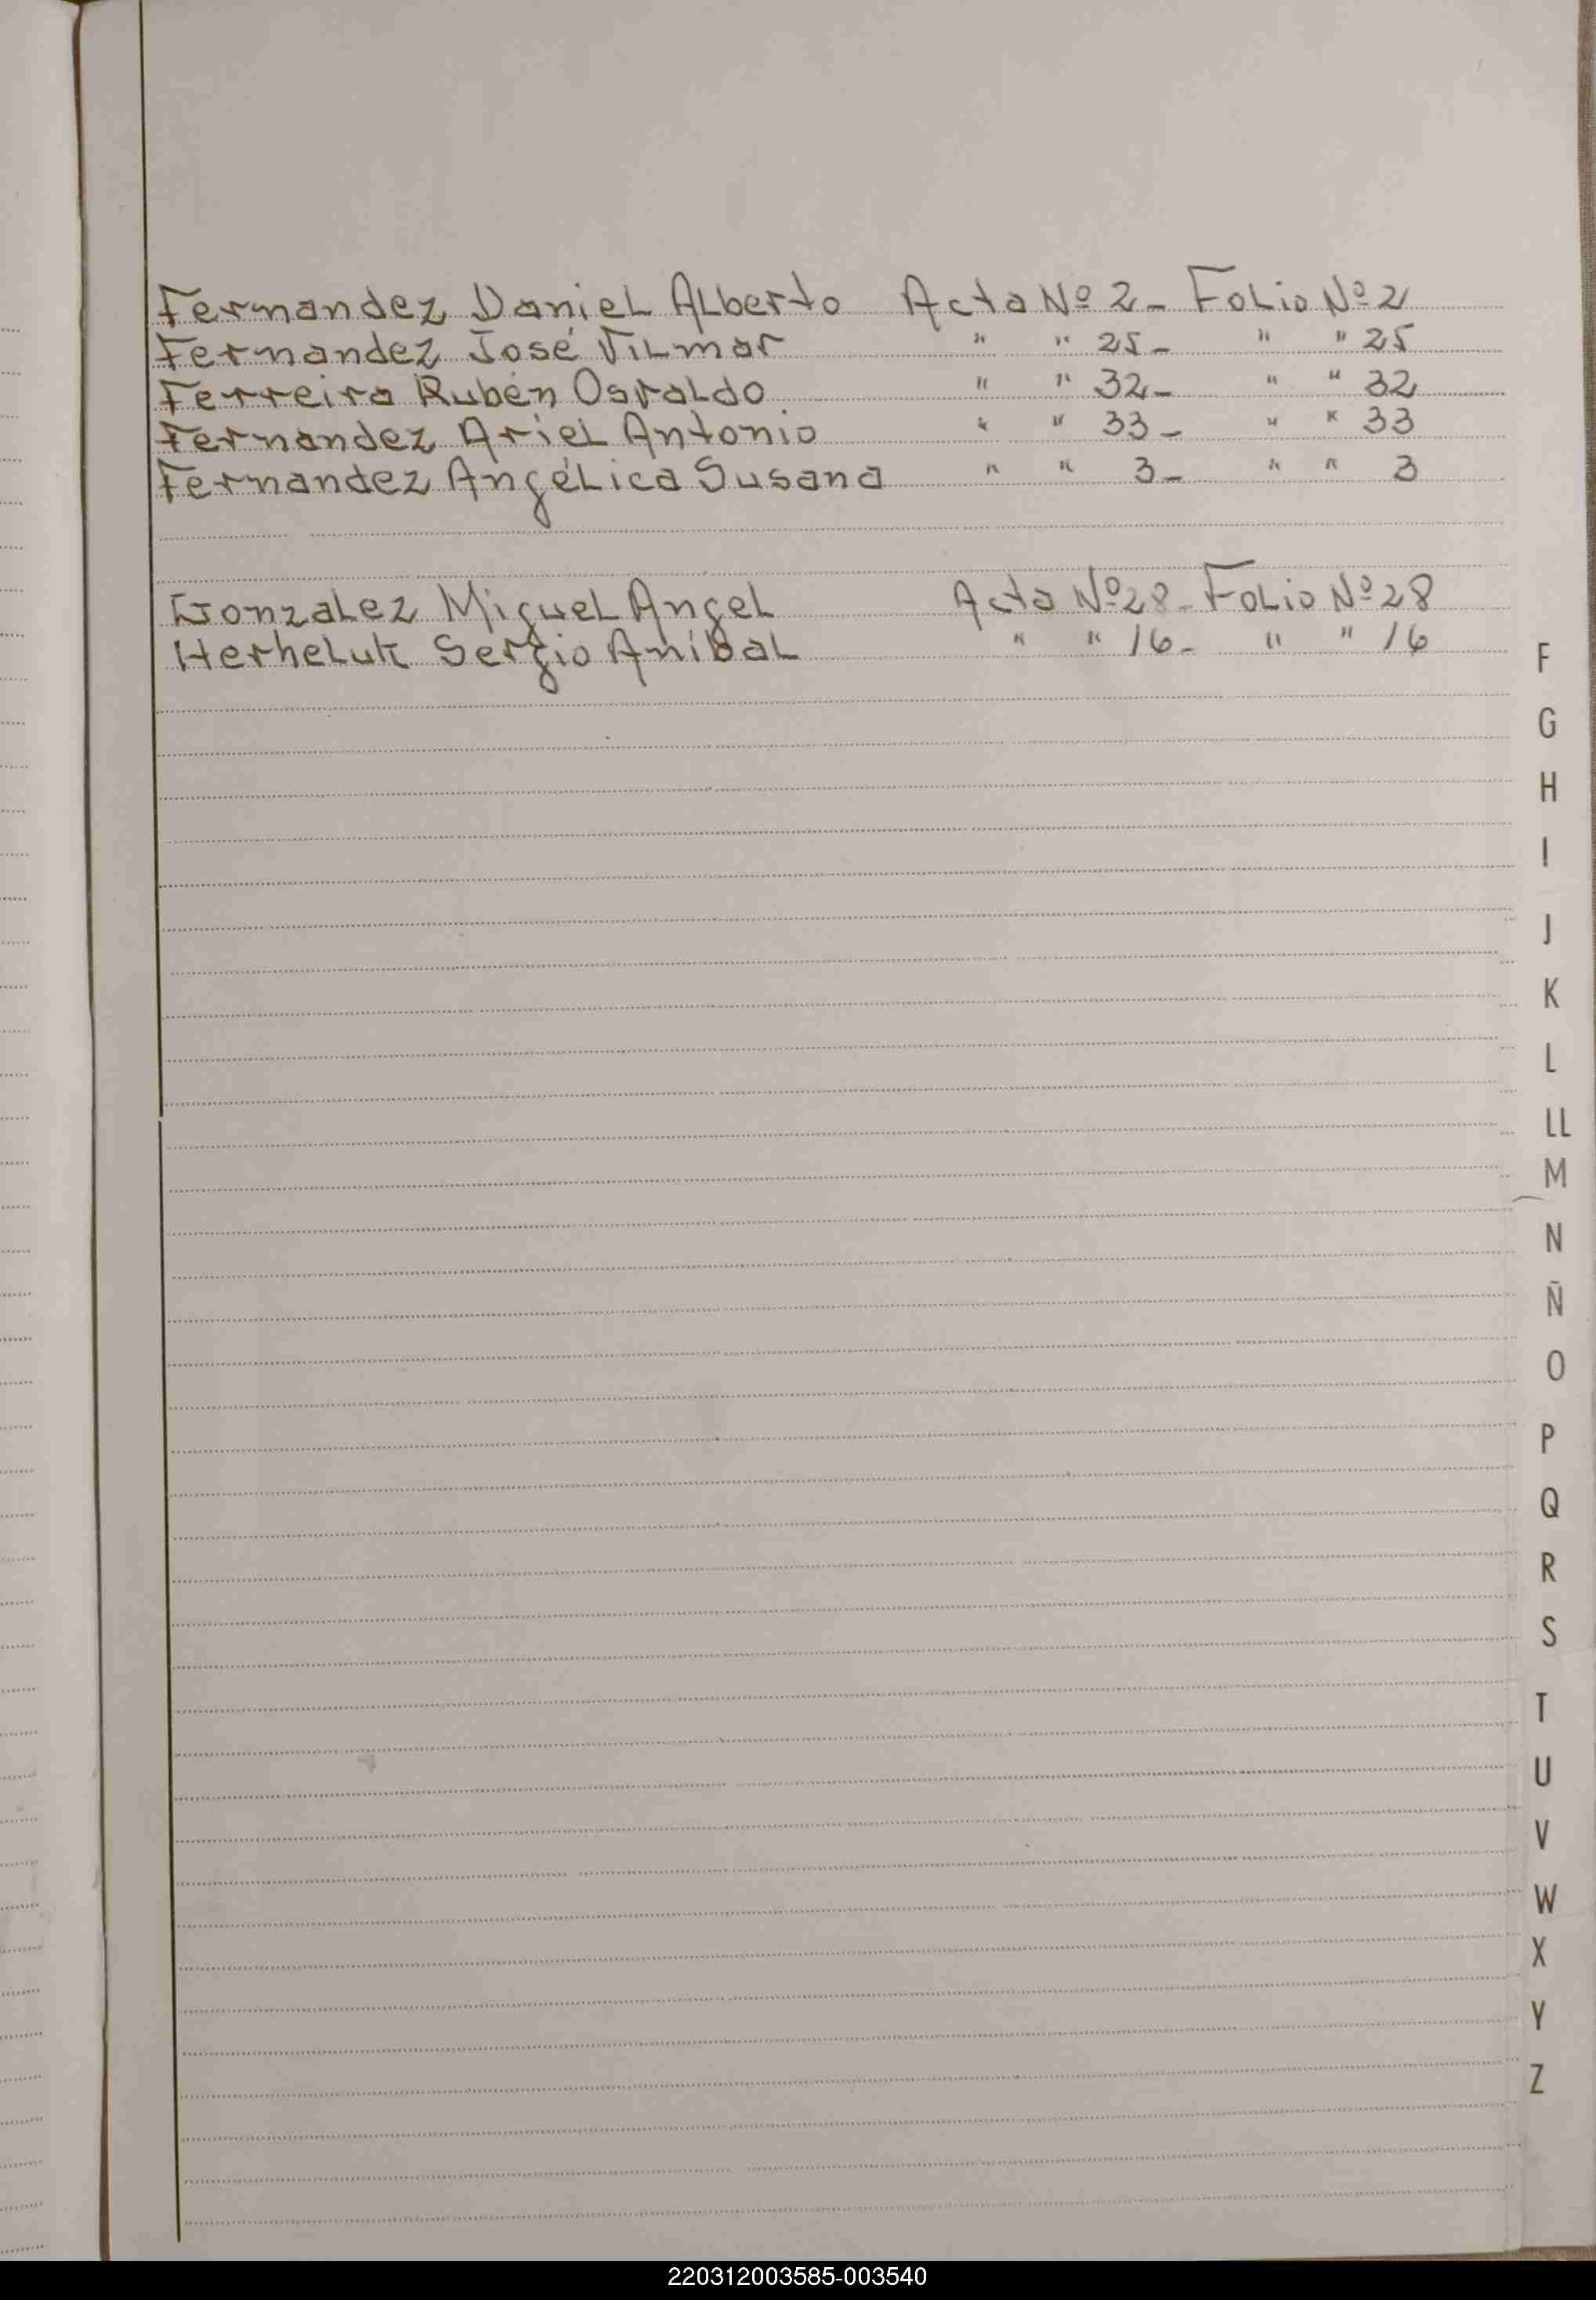 Fernandez Daniel Alberto Acta Nº 2- Folio Nº 2
Fernandez José Vilmar " " 25- " " 25
Ferreira Rubén Osvaldo " " 32- " " 32
Fernandez Ariel Antonio " " 33- " " 33
Fernandez Angélica Susana " " 3- " " 3
Gonzalez Miguel Angel Acta Nº 28- Folio Nº 28
Herheluk Sergio Aníbal " " 16- " " 16
F
G
H
I
J
K
L
LL
M
N
Ñ
O
P
Q
R
S
T
U
V
W
X
Y
Z
220312003585-003540